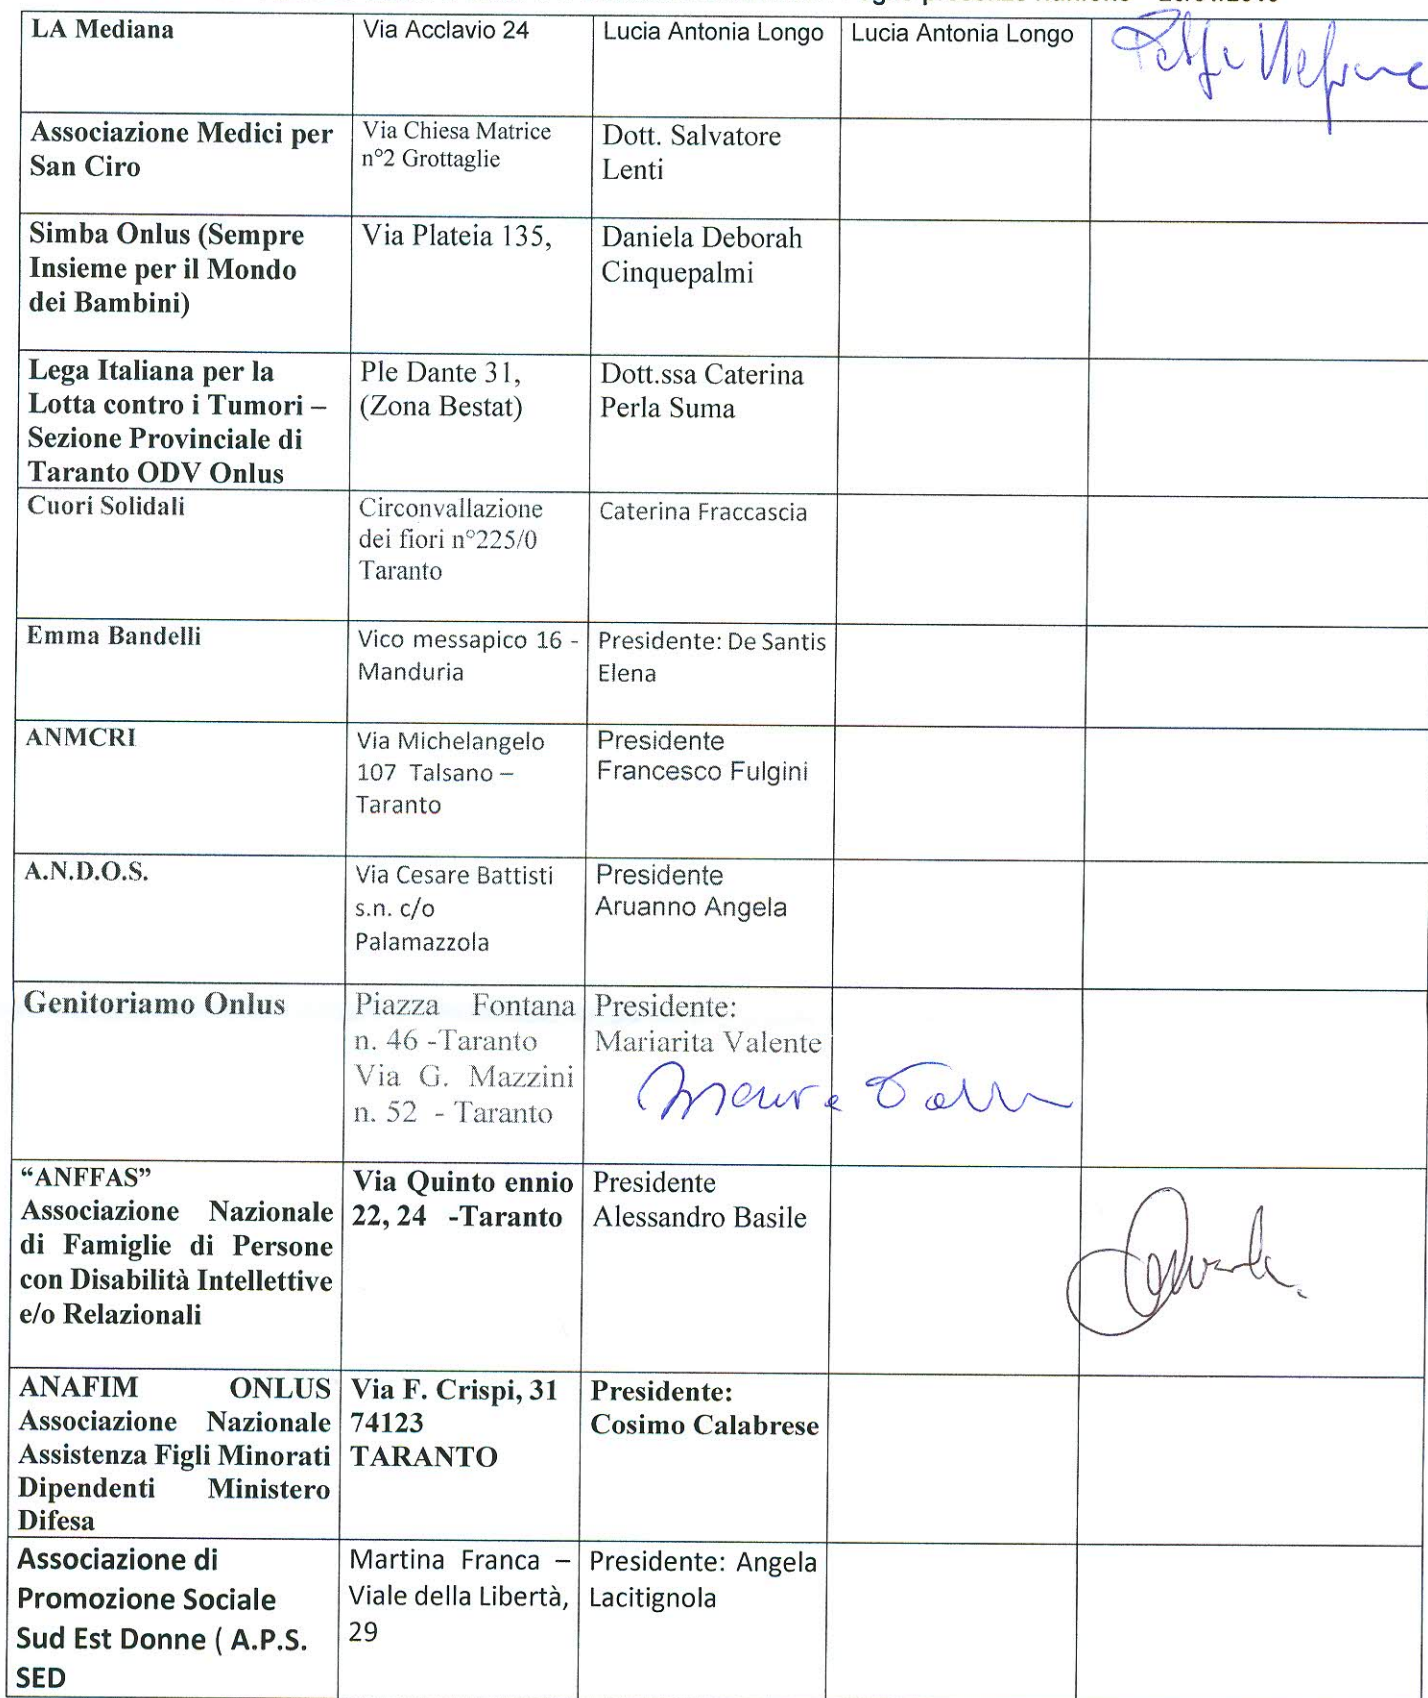 LA Mediana
Via Acclavio 24
Lucia Antonia Longo
Lucia Antonia Longo
Associazione Medici per
San Ciro
Via Chiesa Matrice
n°2 Grottaglie
Dott. Salvatore
Lenti
Simba Onlus (Sempre
Insieme per il Mondo
dei Bambini)
Via Plateia 135,
Daniela Deborah
Cinquepalmi
Lega Italiana per la
Lotta contro i Tumori –
Sezione Provinciale di
Taranto ODV Onlus
Ple Dante 31,
(Zona Bestat)
Dott.ssa Caterina
Perla Suma
Cuori Solidali
Circonvallazione
dei fiori n°225/0
Taranto
Caterina Fraccascia
Emma Bandelli
Vico messapico 16 -
Manduria
Presidente: De Santis
Elena
ANMCRI
Via Michelangelo
107 Talsano –
Taranto
Presidente
Francesco Fulgini
A.N.D.O.S.
Via Cesare Battisti
s.n. c/o
Palamazzola
Presidente
Aruanno Angela
Genitoriamo Onlus
Piazza Fontana
n. 46 -Taranto
Via G. Mazzini
n. 52 - Taranto
Presidente:
Mariarita Valente
“ANFFAS”
Associazione Nazionale
di Famiglie di Persone
con Disabilità Intellettive
e/o Relazionali
Via Quinto ennio
22, 24 -Taranto
Presidente
Alessandro Basile
ANAFIM ONLUS
Associazione Nazionale
Assistenza Figli Minorati
Dipendenti Ministero
Difesa
Via F. Crispi, 31
74123
TARANTO
Presidente:
Cosimo Calabrese
Associazione di
Promozione Sociale
Sud Est Donne ( A.P.S.
SED
Martina Franca –
Viale della Libertà,
29
Presidente: Angela
Lacitignola